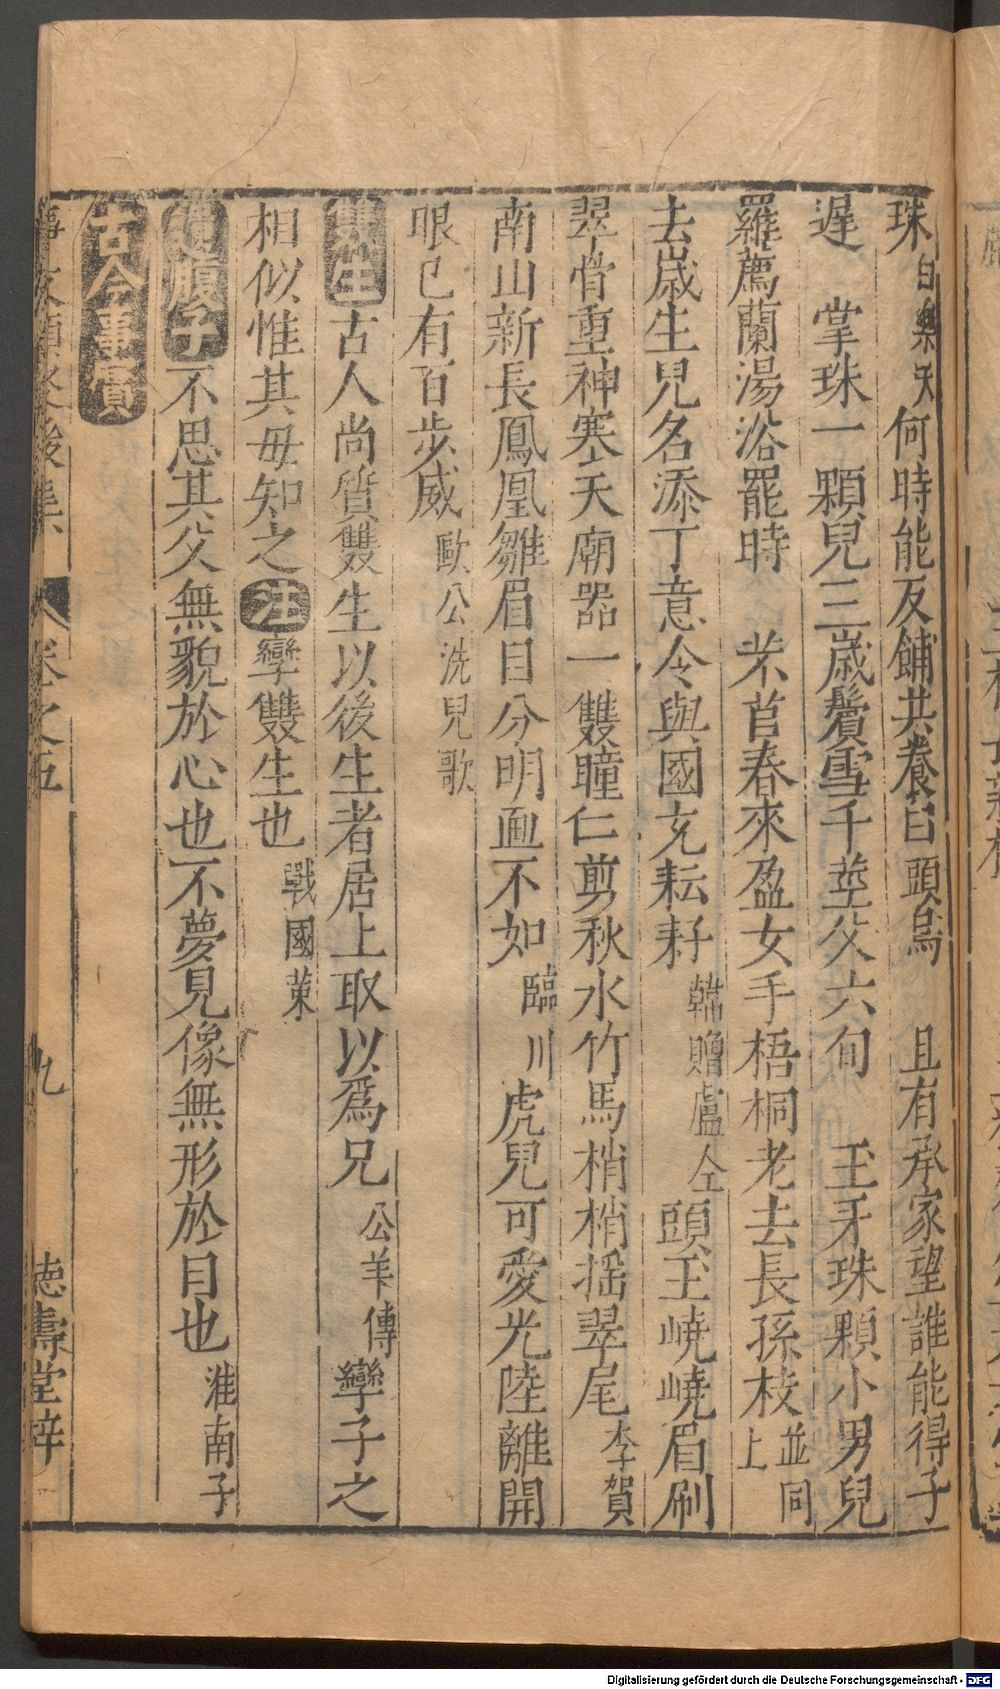 珠白樂天何時能反鋪共養白頭烏　且有承家望誰能得子
遲　掌珠一顆兒三歲鬢雪千莖父六旬　玉牙珠顆小男兒
羅薦蘭湯浴罷時　芣苢春來盈女手梧桐老去長孫枝並同上
去歲生兒名添丁意令與國充耘耔韓贈盧仝頭玉嶢嶢眉刷
翠骨重神寒天廟器一雙瞳仁剪秋水竹馬梢梢搖翠尾李賀
南山新長鳳凰雛眉目分明画不如臨川虎兒可愛光陸離開
眼已有百步威歐公洗兒歌
雙生古人尚質雙生以後生者居上取以為兄公羊傳孿子之
相似惟其母知之注孿雙生也戰國策
遺腹子不思其父無貌於心也不夢見像無形於目也淮南子
古今事實
事文類聚後集　卷之五　九　德壽堂梓
Digitalisierung gefördert durch die Deutsche Forschungsgemeinschaft - DFG